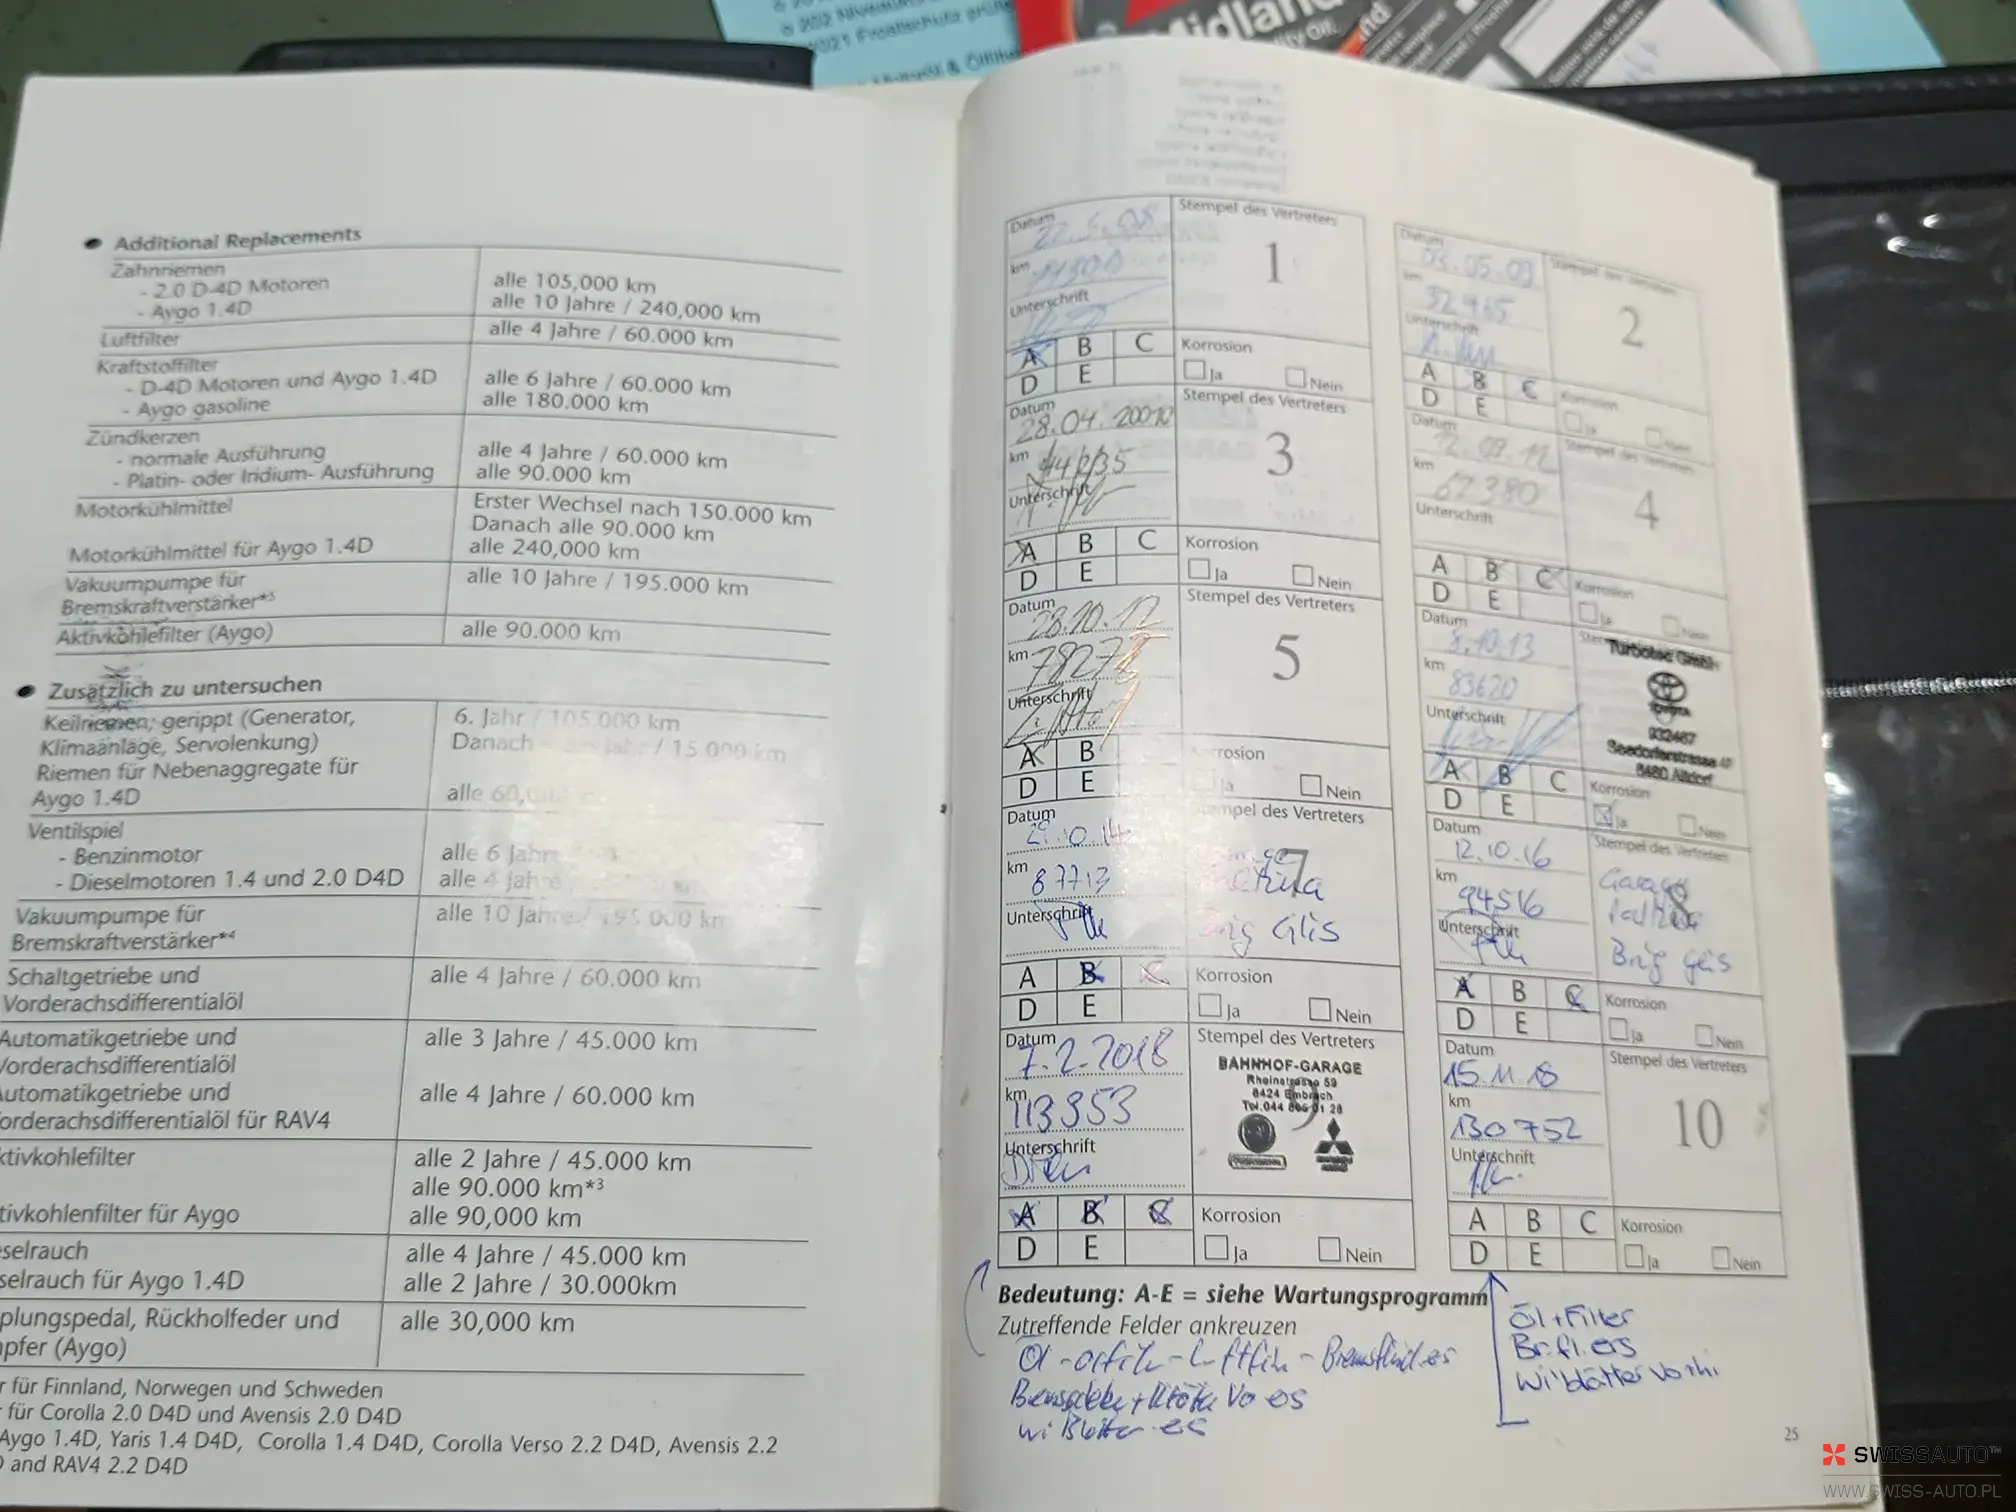 2021 Frostschutz
Midland
Additional Replacements
Zahnriemen
- 2.0 D-4D Motoren
alle 105,000 km
- Aygo 1.4D
alle 10 Jahre / 240,000 km
Luftfilter
alle 4 Jahre / 60.000 km
Kraftstoffilter
- D-4D Motoren und Aygo 1.4D
alle 6 Jahre / 60.000 km
- Aygo gasoline
alle 180.000 km
Zündkerzen
- normale Ausführung
alle 4 Jahre / 60.000 km
- Platin- oder Iridium- Ausführung
alle 90.000 km
Motorkühlmittel
Erster Wechsel nach 150.000 km
Danach alle 90.000 km
Motorkühlmittel für Aygo 1.4D
alle 240,000 km
Vakuumpumpe für
Bremskraftverstärker*5
alle 10 Jahre / 195.000 km
Aktivkohlefilter (Aygo)
alle 90.000 km
Zusätzlich zu untersuchen
Keilriemen, gerippt (Generator,
Klimaanlage, Servolenkung)
6. Jahr / 105.000 km
Danach Jahr / 15 000 km
Riemen für Nebenaggregate für
Aygo 1.4D
alle 60,0
Ventilspiel
- Benzinmotor
alle 6 Jahre
- Dieselmotoren 1.4 und 2.0 D4D
alle 4 Jahre km
Vakuumpumpe für
Bremskraftverstärker*4
alle 10 Jahre / 195 000 km
Schaltgetriebe und
Vorderachsdifferentialöl
alle 4 Jahre / 60.000 km
Automatikgetriebe und
Vorderachsdifferentialöl
alle 3 Jahre / 45.000 km
utomatikgetriebe und
orderachsdifferentialöl für RAV4
alle 4 Jahre / 60.000 km
ktivkohlefilter
alle 2 Jahre / 45.000 km
alle 90.000 km*3
tivkohlenfilter für Aygo
alle 90,000 km
eselrauch
alle 4 Jahre / 45.000 km
selrauch für Aygo 1.4D
alle 2 Jahre / 30.000km
plungspedal, Rückholfeder und
pfer (Aygo)
alle 30,000 km
r für Finnland, Norwegen und Schweden
für Corolla 2.0 D4D und Avensis 2.0 D4D
Aygo 1.4D, Yaris 1.4 D4D, Corolla 1.4 D4D, Corolla Verso 2.2 D4D, Avensis 2.2
D and RAV4 2.2 D4D
Datum
Stempel des Vertreters
1
km
Unterschrift
A B C
D E
Korrosion
Ja Nein
Datum
03.05.09
Stempel des Vertreters
2
km
32965
Unterschrift
A B C
D E
Korrosion
Ja Nein
Datum
28.04.20010
Stempel des Vertreters
3
km
Unterschrift
A B C
D E
Korrosion
Ja Nein
Datum
Stempel des Vertreters
4
km
62380
Unterschrift
A B C
D E
Korrosion
Ja Nein
Datum
28.10.12
Stempel des Vertreters
5
km
Unterschrift
A B
D E
Korrosion
Ja Nein
Datum
5.10.13
Turbotec GmbH
TOYOTA
932467
Seedorferstrasse
6460 Altdorf
km
83620
Unterschrift
A B C
D E
Korrosion
Ja Nein
Datum
29.10.14
Stempel des Vertreters
7
km
87713
Brig Glis
Unterschrift
A B C
D E
Korrosion
Ja Nein
Datum
12.10.16
Stempel des Vertreters
8
Garage
km
94516
Brig Glis
Unterschrift
A B C
D E
Korrosion
Ja Nein
Datum
7.2.2018
Stempel des Vertreters
9
BAHNHOF-GARAGE
Rheinstrasse 59
8424 Embrach
km
113353
Unterschrift
A B C
D E
Korrosion
Ja Nein
Datum
15.11.18
Stempel des Vertreters
10
km
130752
Unterschrift
A B C
D E
Korrosion
Ja Nein
Bedeutung: A-E = siehe Wartungsprogramm
Zutreffende Felder ankreuzen
Öl+Filter
Br.fl.ers
25
SWISSAUTO™
WWW.SWISS-AUTO.PL